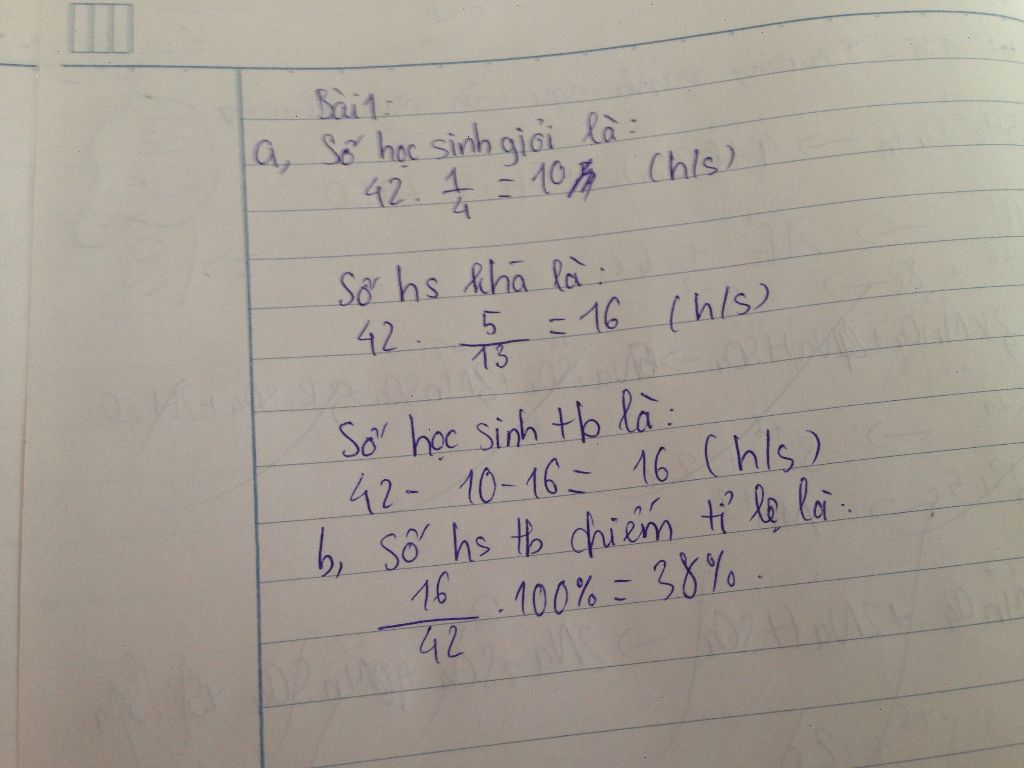 Bài 1:
a, Số học sinh giỏi là:
42. 1/4 = 10 (h/s)
Số hs khá là:
42. 5/13 = 16 (h/s)
Số học sinh tb là:
42 - 10 - 16 = 16 (h/s)
b, Số hs tb chiếm tỉ lệ là:
16/42 .100% = 38%.